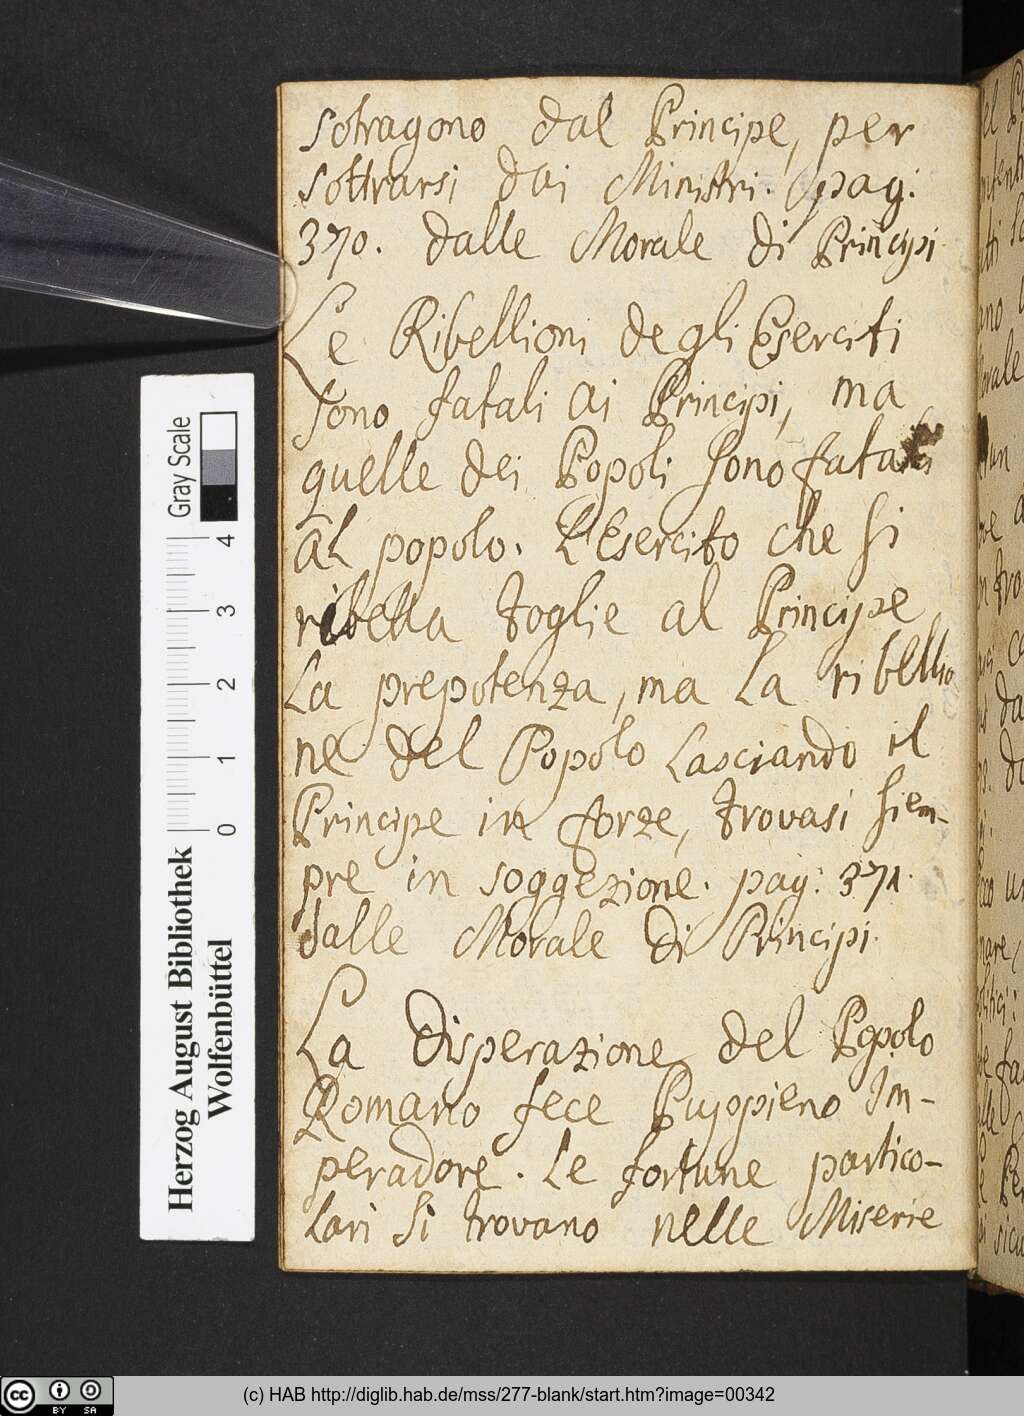 sotragono dal Principe, per
sottrarsi dai Ministri. pag:
370. dalle Morale di Principi.
Le Ribellioni degli Eserciti
sono fatali ai Principi, ma
quelle dei Popoli sono fatali
al popolo. L'Esercito che si
ribella toglie al Principe
La prepotenza, ma La ribellio
ne del Popolo Lasciando il
Principe in forze, trovasi siem-
pre in soggezione. pag: 371.
dalle Morale di Principi.
La Disperazione del Popolo
Romano fece Puppieno Im-
peradore. Le fortune partico-
lari si trovano nelle Miserie
Gray Scale
4
3
2
1
0
Herzog August Bibliothek
Wolfenbüttel
cc BY SA
(c) HAB http://diglib.hab.de/mss/277-blank/start.htm?image=00342